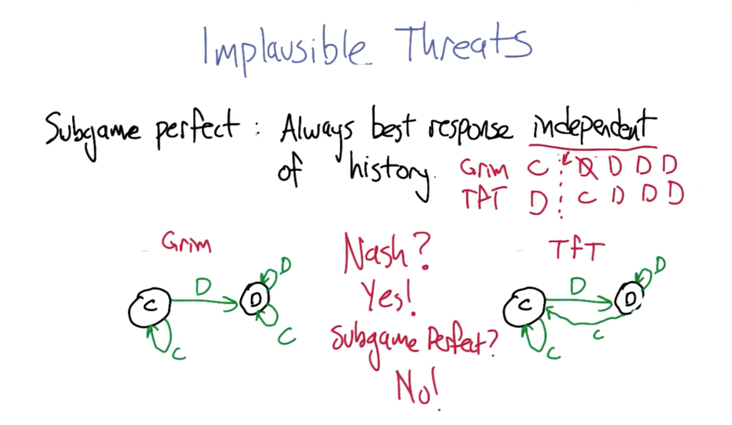 Implausible Threats
Subgame perfect : Always best response independent
of history.
Grim C D D D D
TFT D C D D D
Grim
C D D D C C
Nash?
Yes!
Subgame Perfect?
No!
TfT
C D D D C C